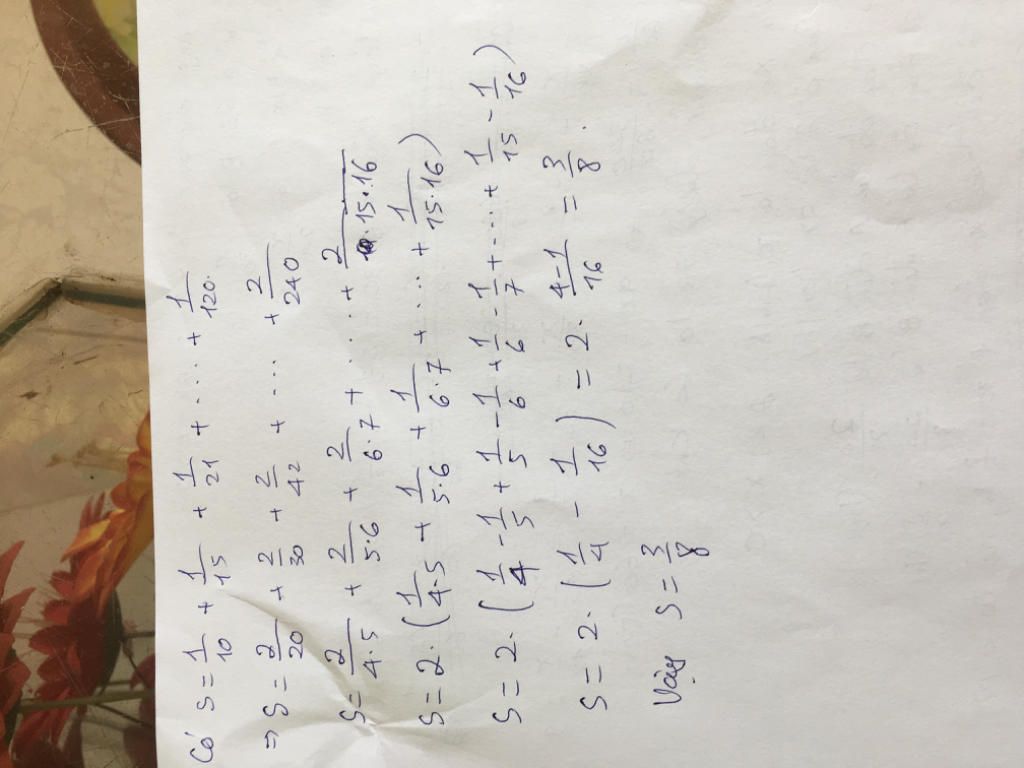 Có S = 1/10 + 1/15 + 1/21 + ... + 1/120.
⇒ S = 2/20 + 2/30 + 2/42 + .... + 2/240
S = 2/4.5 + 2/5.6 + 2/6.7 + ... + 2/15.16
S = 2.(1/4.5 + 1/5.6 + 1/6.7 + ... + 1/15.16)
S = 2.(1/4 - 1/5 + 1/5 - 1/6 + 1/6 - 1/7 + ... + 1/15 - 1/16)
S = 2.(1/4 - 1/16) = 2. 4-1/16 = 3/8.
Vậy S = 3/8